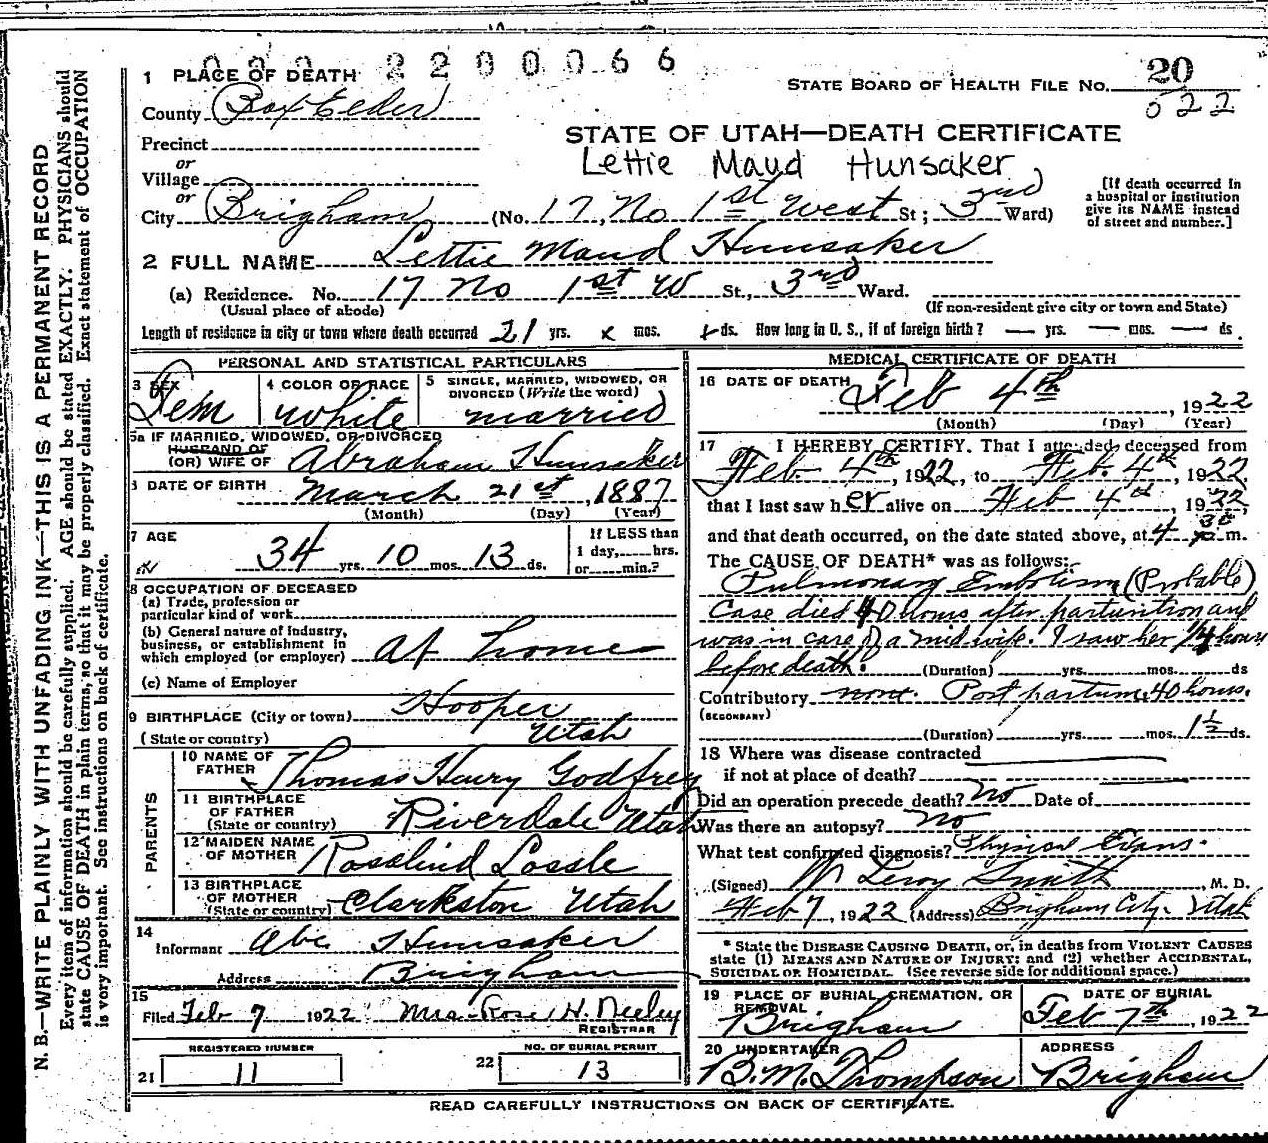 2200066
1 PLACE OF DEATH
STATE BOARD OF HEALTH FILE NO. 20
County Box Elder
022
STATE OF UTAH—DEATH CERTIFICATE
Precinct
Lettie Maud Hunsaker
or
Village
or
[If death occurred in
a hospital or institution
give its NAME instead
of street and number.]
City Brigham (No. 17 No 1st West St; 3rd Ward)
2 FULL NAME Lettie Maud Hunsaker
(a) Residence. No. 17 No 1st W St., 3rd Ward.
(Usual place of abode) (If non-resident give city or town and State)
Length of residence in city or town where death occurred 21 yrs. x mos. x ds. How long in U. S., if of foreign birth? — yrs. — mos. — ds
PERSONAL AND STATISTICAL PARTICULARS
3 SEX Fem
4 COLOR OR RACE white
5 SINGLE, MARRIED, WIDOWED, OR
DIVORCED (Write the word)
married
5a IF MARRIED, WIDOWED, OR DIVORCED
HUSBAND OF
(OR) WIFE OF Abraham Hunsaker
6 DATE OF BIRTH March 21st, 1887
(Month) (Day) (Year)
7 AGE 34 yrs. 10 mos. 13 ds.
If LESS than
1 day, hrs.
or min.?
8 OCCUPATION OF DECEASED
(a) Trade, profession or
particular kind of work
(b) General nature of Industry,
business, or establishment in
which employed (or employer) at home
(c) Name of Employer
9 BIRTHPLACE (City or town) Hooper
(State or country) Utah
PARENTS
10 NAME OF
FATHER Thomas Henry Godfrey
11 BIRTHPLACE
OF FATHER
(State or country) Riverdale Utah
12 MAIDEN NAME
OF MOTHER Rosalind Lossle
13 BIRTHPLACE
OF MOTHER
(State or country) Clarkston Utah
14
Informant Abe Hunsaker
Address Brigham
15
Filed Feb 7 1922 Mrs Rose H. Neeley
REGISTRAR
REGISTERED NUMBER
21 11
NO. OF BURIAL PERMIT
22 13
MEDICAL CERTIFICATE OF DEATH
16 DATE OF DEATH Feb 4th, 1922
(Month) (Day) (Year)
17 I HEREBY CERTIFY, That I attended deceased from
Feb. 4th, 1922, to Feb. 4th, 1922,
that I last saw her alive on Feb 4th, 1922,
and that death occurred, on the date stated above, at 4 30 m.
The CAUSE OF DEATH* was as follows:
Pulmonary Embolism (Probable)
Case died 40 hours after parturition and
was in care of a mid wife. I saw her 1/4 hour
before death. (Duration) yrs. mos. ds
Contributory none. Post partum 40 hours.
(SECONDARY)
(Duration) yrs. mos. 1½ ds.
18 Where was disease contracted
if not at place of death?
Did an operation precede death? No Date of
Was there an autopsy? No
What test confirmed diagnosis? Physical Exam.
(Signed) W Leroy Smith, M. D.
Feb 7, 1922 (Address) Brigham City, Utah
* State the DISEASE CAUSING DEATH, or, in deaths from VIOLENT CAUSES
state (1) MEANS AND NATURE OF INJURY; and (2) whether ACCIDENTAL,
SUICIDAL OR HOMICIDAL. (See reverse side for additional space.)
19 PLACE OF BURIAL, CREMATION, OR
REMOVAL
Brigham
DATE OF BURIAL
Feb 7th, 1922
20 UNDERTAKER
B. M. Thompson
ADDRESS
Brigham
READ CAREFULLY INSTRUCTIONS ON BACK OF CERTIFICATE.
N. B.—WRITE PLAINLY WITH UNFADING INK—THIS IS A PERMANENT RECORD
Every item of information should be carefully supplied. AGE should be stated EXACTLY. PHYSICIANS should
state CAUSE OF DEATH in plain terms, so that it may be properly classified. Exact statement of OCCUPATION
is very important. See instructions on back of certificate.